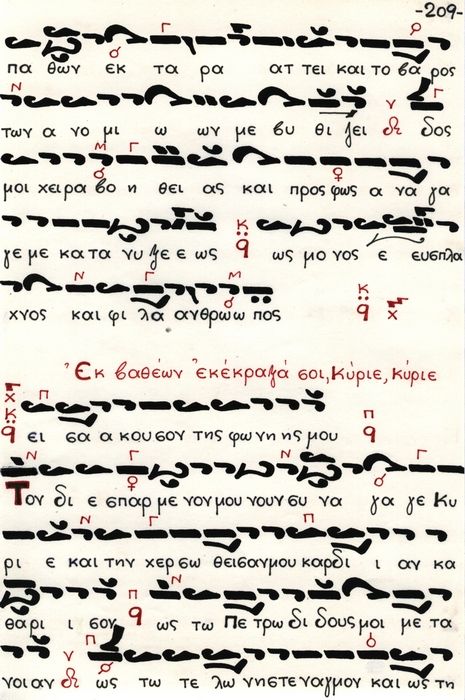 -209-
πα θων εκ τα ρα ατ τει και το βα ρος
των α νο μι ω ων με βυ θι ζει δι δος
μοι χειρα βο η θει ας και προς φως α να γα
γε με κατα νυ ξε ε ως ως μο νος ε ευσπλα
χνος και φι λα ανθρωω πος
Ἐκ βαθέων ἐκέκραξά σοι, Κύριε, κύριε
ει σα α κουσον της φω νη ης μου
Τον δι ε σπαρ με νον μου νουν συ να γα γε Κυ
ρι ε και την χερ σω θεισαν μου καρδι ι αν κα
θα ρι ι σον ως τω Πε τρω δι δους μοι με τα
νοι αν ως τω τε λω νη στεναγμον και ως τη